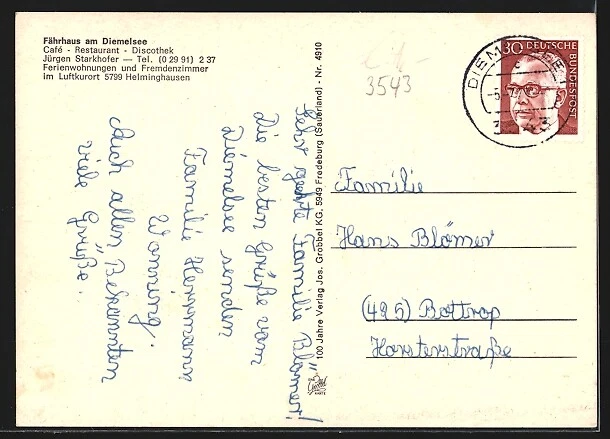 Fährhaus am Diemelsee
Café - Restaurant - Discothek
Jürgen Starkhofer — Tel. (0 29 91) 2 37
Ferienwohnungen und Fremdenzimmer
im Luftkurort 5799 Helminghausen
3543
30 DEUTSCHE
BUNDESPOST
DIEM
100 Jahre Verlag Jos. Grobbel KG, 5949 Fredeburg (Sauerland) - Nr. 4910
Sehr geehrte Familie Blömer!
Die besten Grüße vom
Diemelsee senden
Familie Heinemann
Wonning.
Auch allen Bekannten
viele Grüße..
Familie
Hans Blömer
(495) Bottrop
Horsterstraße